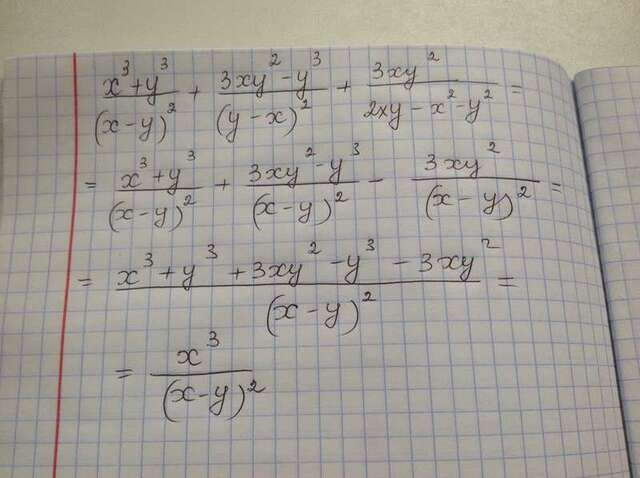 (x³+y³)/(x-y)² + (3xy²-y³)/(y-x)² + 3xy²/(2xy-x²-y²) =
= (x³+y³)/(x-y)² + (3xy²-y³)/(x-y)² - 3xy²/(x-y)² =
= (x³+y³+3xy²-y³-3xy²)/(x-y)² =
= x³/(x-y)²